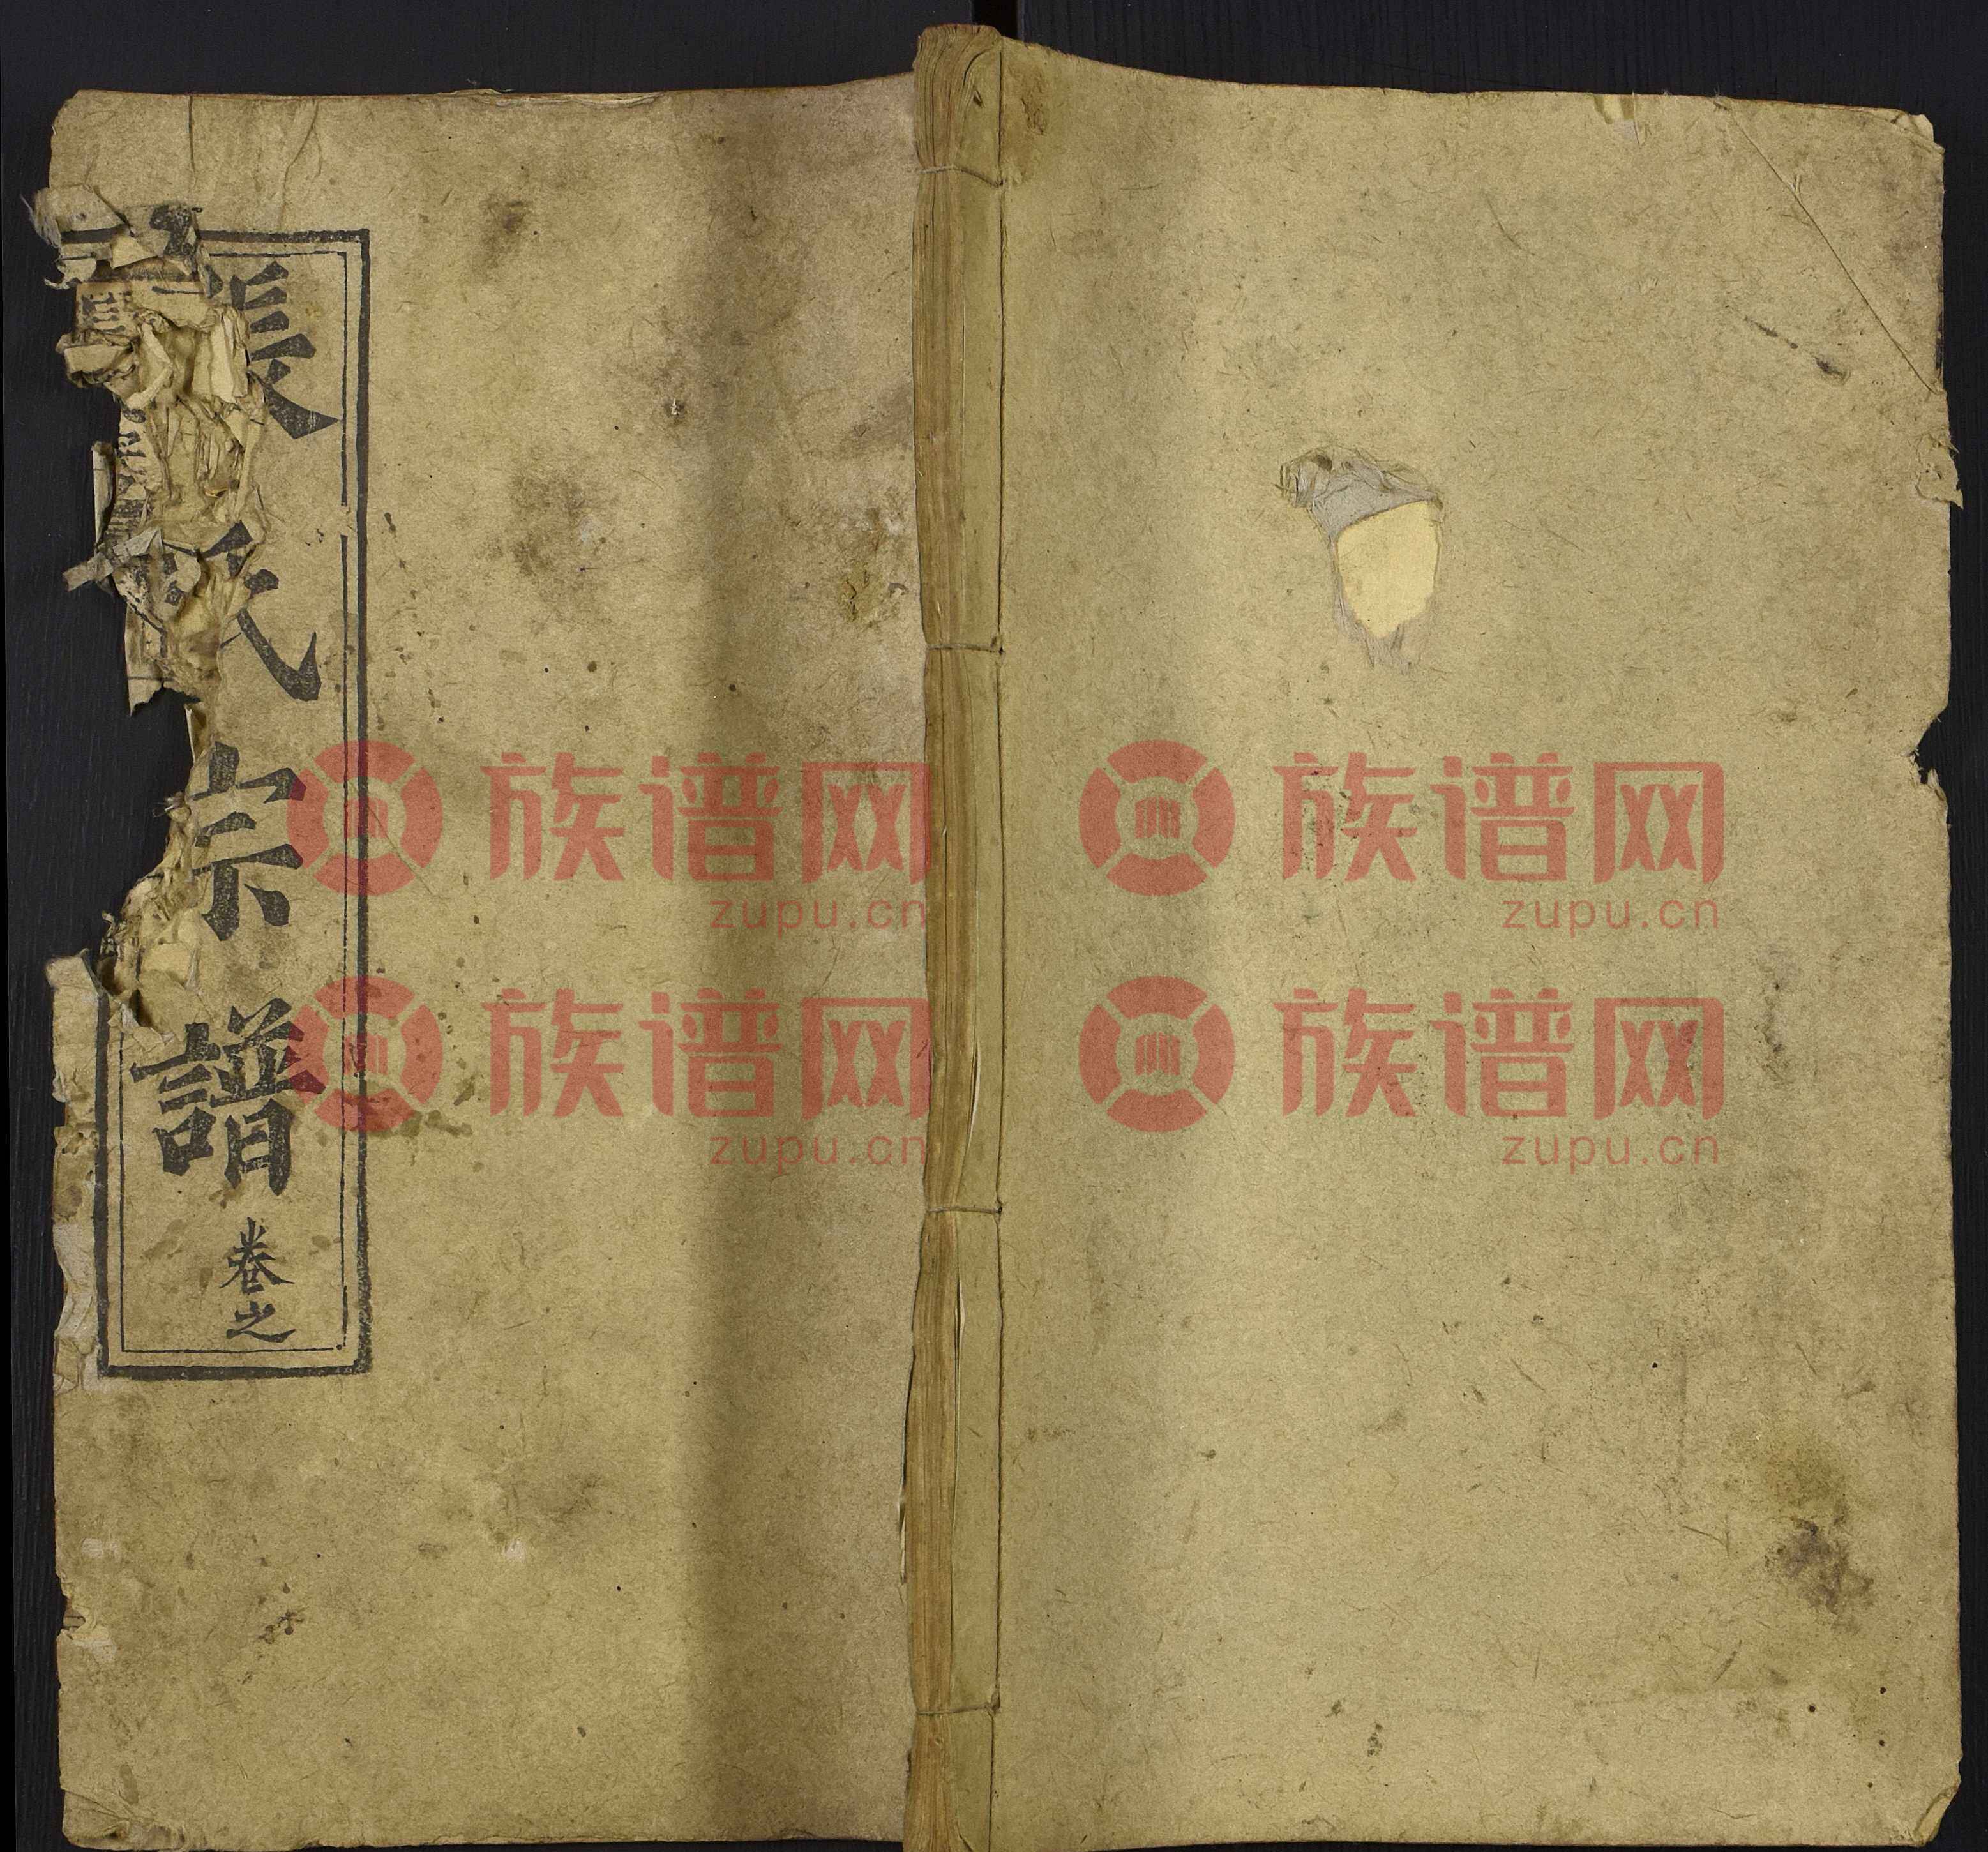 張氏宗譜
卷之
族谱网
zupu.cn
族谱网
zupu.cn
族谱网
zupu.cn
族谱网
zupu.cn